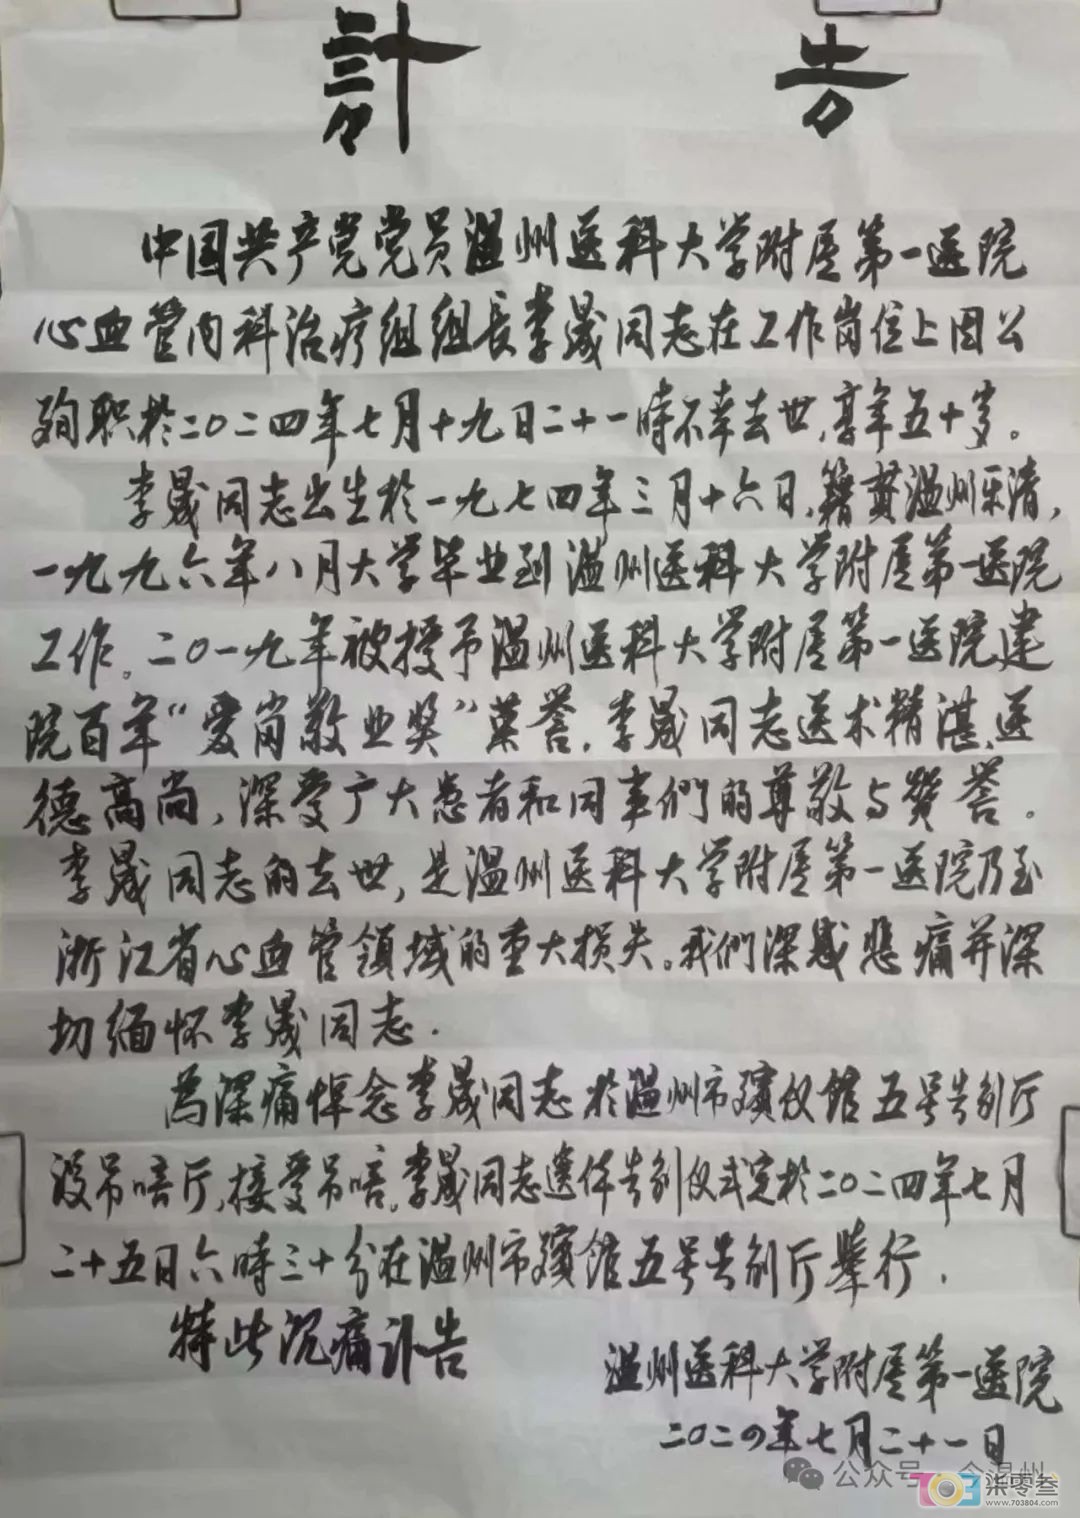 訃 告
中国共产党党员温州医科大学附属第一医院
心血管内科治疗组组長李晟同志在工作岗位上因公
殉职於二〇二四年七月十九日二十一時不幸去世,享年五十岁。
李晟同志出生於一九七四年三月十六日,籍贯温州乐清,
一九九六年八月大学毕业到温州医科大学附属第一医院
工作。二〇一九年被授予温州医科大学附属第一医院建
院百年“爱岗敬业奖”荣誉.李晟同志医术精湛、医
德高尚,深受广大患者和同事們的尊敬与赞誉.
李晟同志的去世,是温州医科大学附属第一医院乃至
浙江省心血管領域的重大损失。我們深感悲痛并深
切缅怀李晟同志.
為深痛悼念李晟同志於温州市殡仪館五号告别厅
设吊唁厅,接受吊唁.李晟同志遗体告别仪式定於二〇二四年七月
二十五日六時三十分在温州市殡館五号告别厅舉行.
特此沉痛讣告
温州医科大学附属第一医院
二〇二四年七月二十一日
公众号·今温州
703 柒零叁
www.703804.com